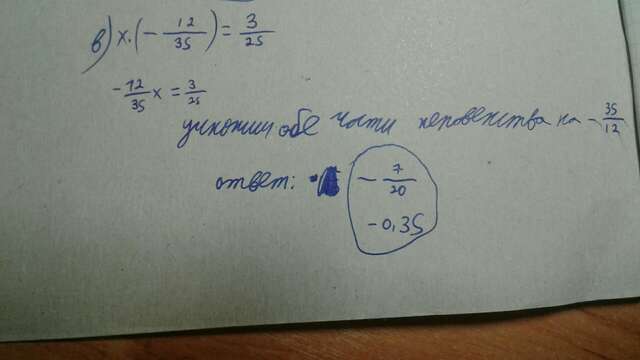 в) x·(-12/35) = 3/25
-12/35 x = 3/25
умножим обе части неровенства на -35/12
ответ: -7/20
-0,35